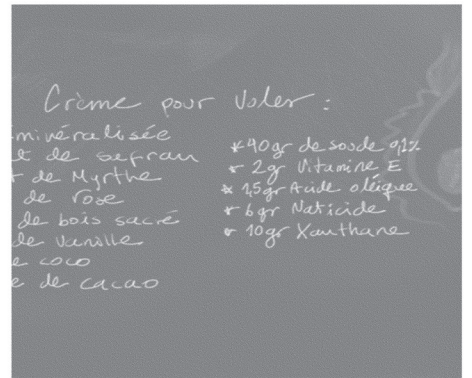 Crème pour voler :
minéralisée
t de safran
t de Myrthe
de rose
de bois sacré
de vanille
e coco
e de cacao
* 40gr de soude 0,1%
* 2gr Vitamine E
* 1,5gr Acide oléique
* 6gr Naticide
* 10gr Xanthane